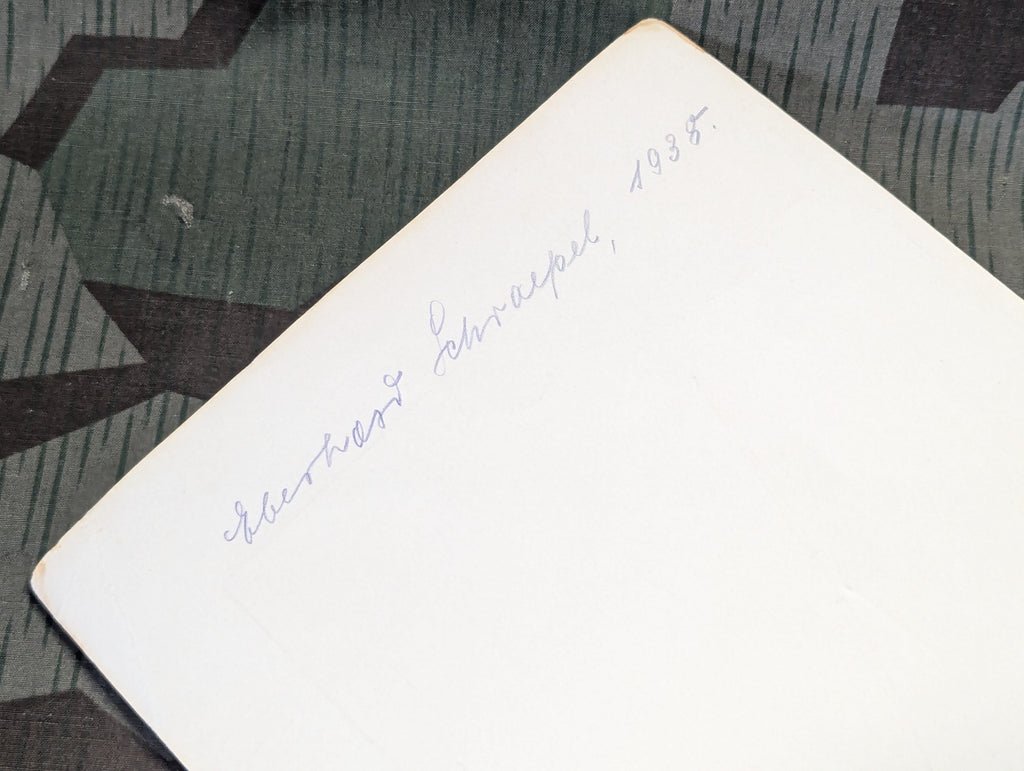 Eberhard Schraepel, 1938.